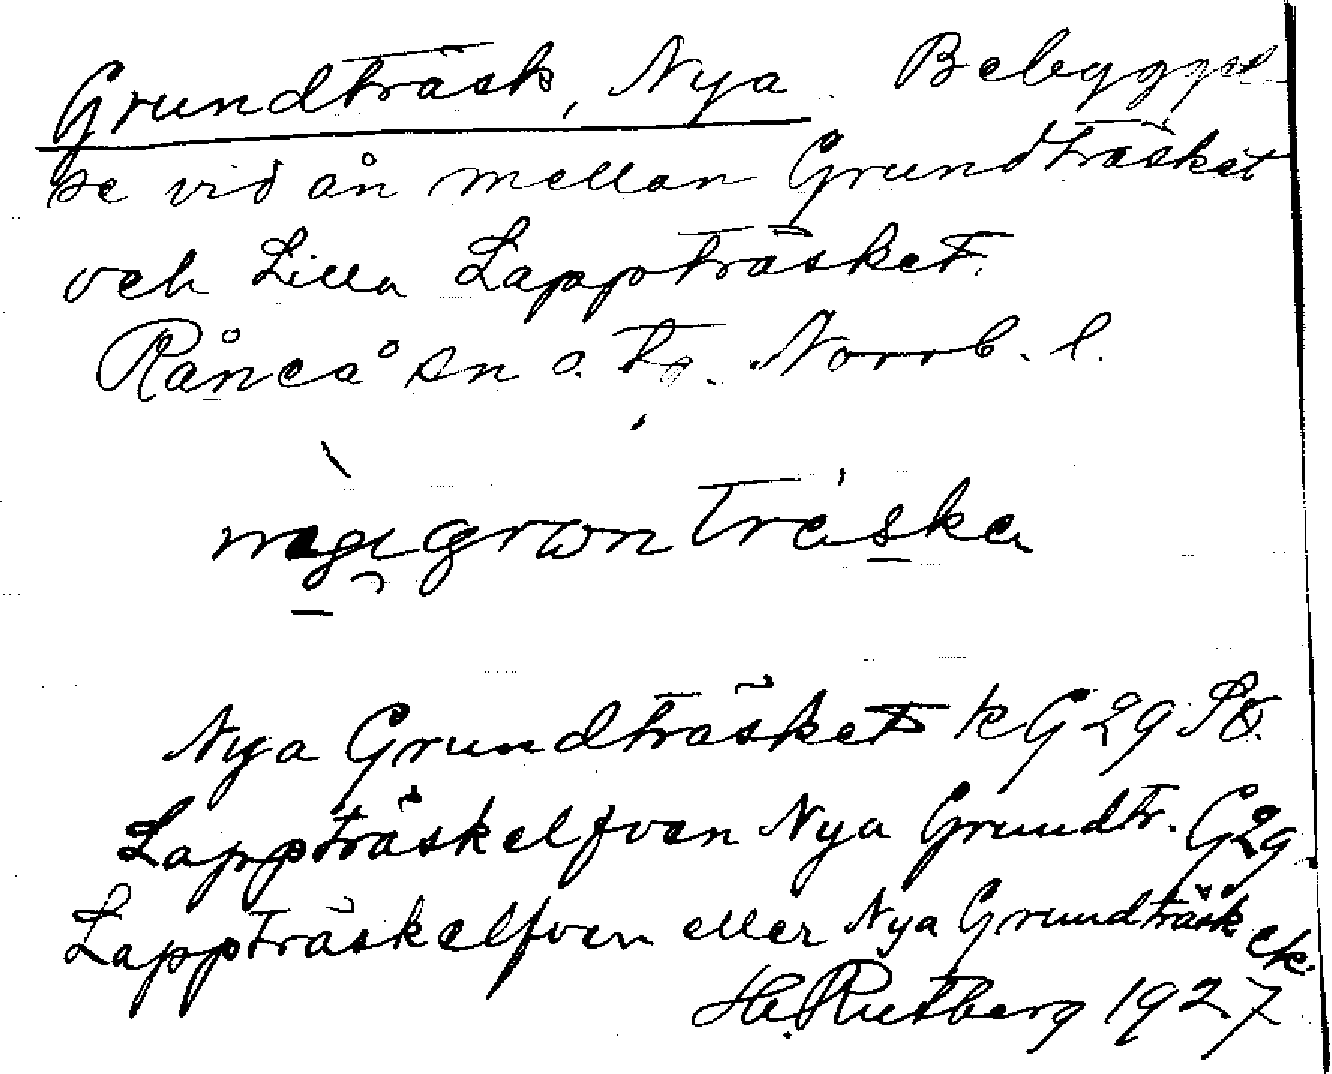 Grundträsk, Nya. Bebyggel-
se vid ån mellan Grundträsket
och Lilla Lappträsket.
Råneå sn o. tg. Norrb. l.
Nya Grundträsket kG29
Lappträskelfven Nya Grundtr. G29.
Lappträskelfven eller Nya Grundträsk ek.
He. Rutberg 1927